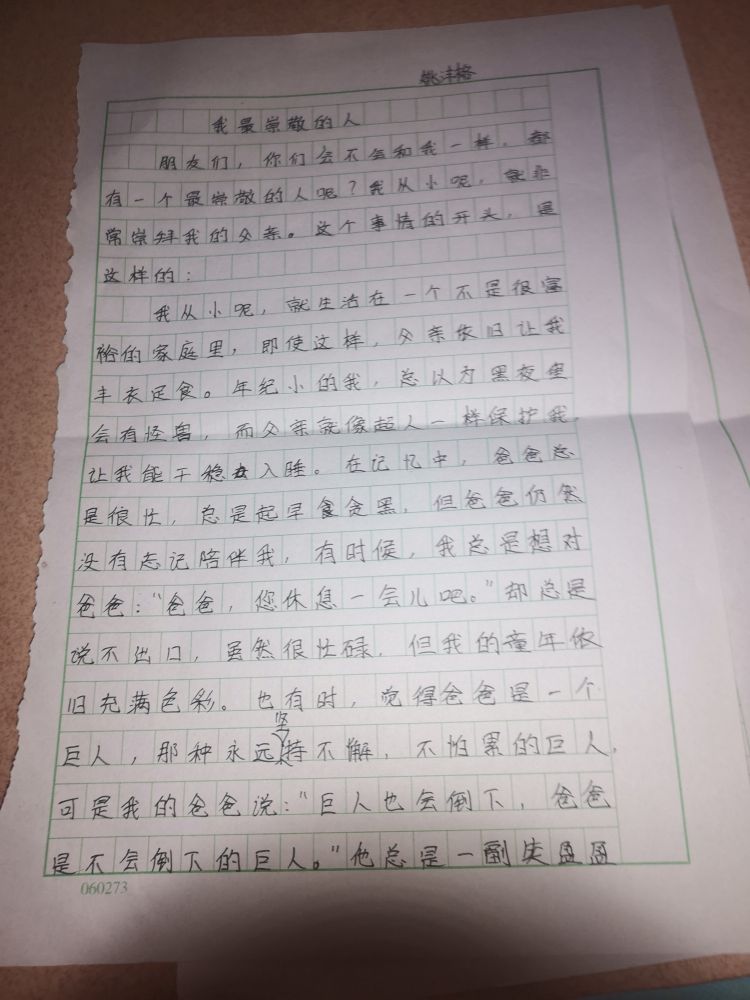 姚沣格
我最崇敬的人
朋友们，你们会不会和我一样，都
有一个最崇敬的人呢？我从小呢，就非
常崇拜我的父亲。这个事情的开头，是
这样的：
我从小呢，就生活在一个不是很富
裕的家庭里，即使这样，父亲依旧让我
丰衣足食。年纪小的我，总以为黑夜里
会有怪兽，而父亲就像超人一样保护我，
让我能干稳入睡。在记忆中，爸爸总
是很忙，总是起早贪黑，但爸爸仍然
没有忘记陪伴我，有时候，我总是想对
爸爸：“爸爸，您休息一会儿吧。”却总是
说不出口，虽然很忙碌，但我的童年依
旧充满色彩。也有时，觉得爸爸是一个
巨人，那种永远坚持不懈，不怕累的巨人，
可是我的爸爸说：“巨人也会倒下，爸爸
是不会倒下的巨人。”他总是一副笑盈盈
060273